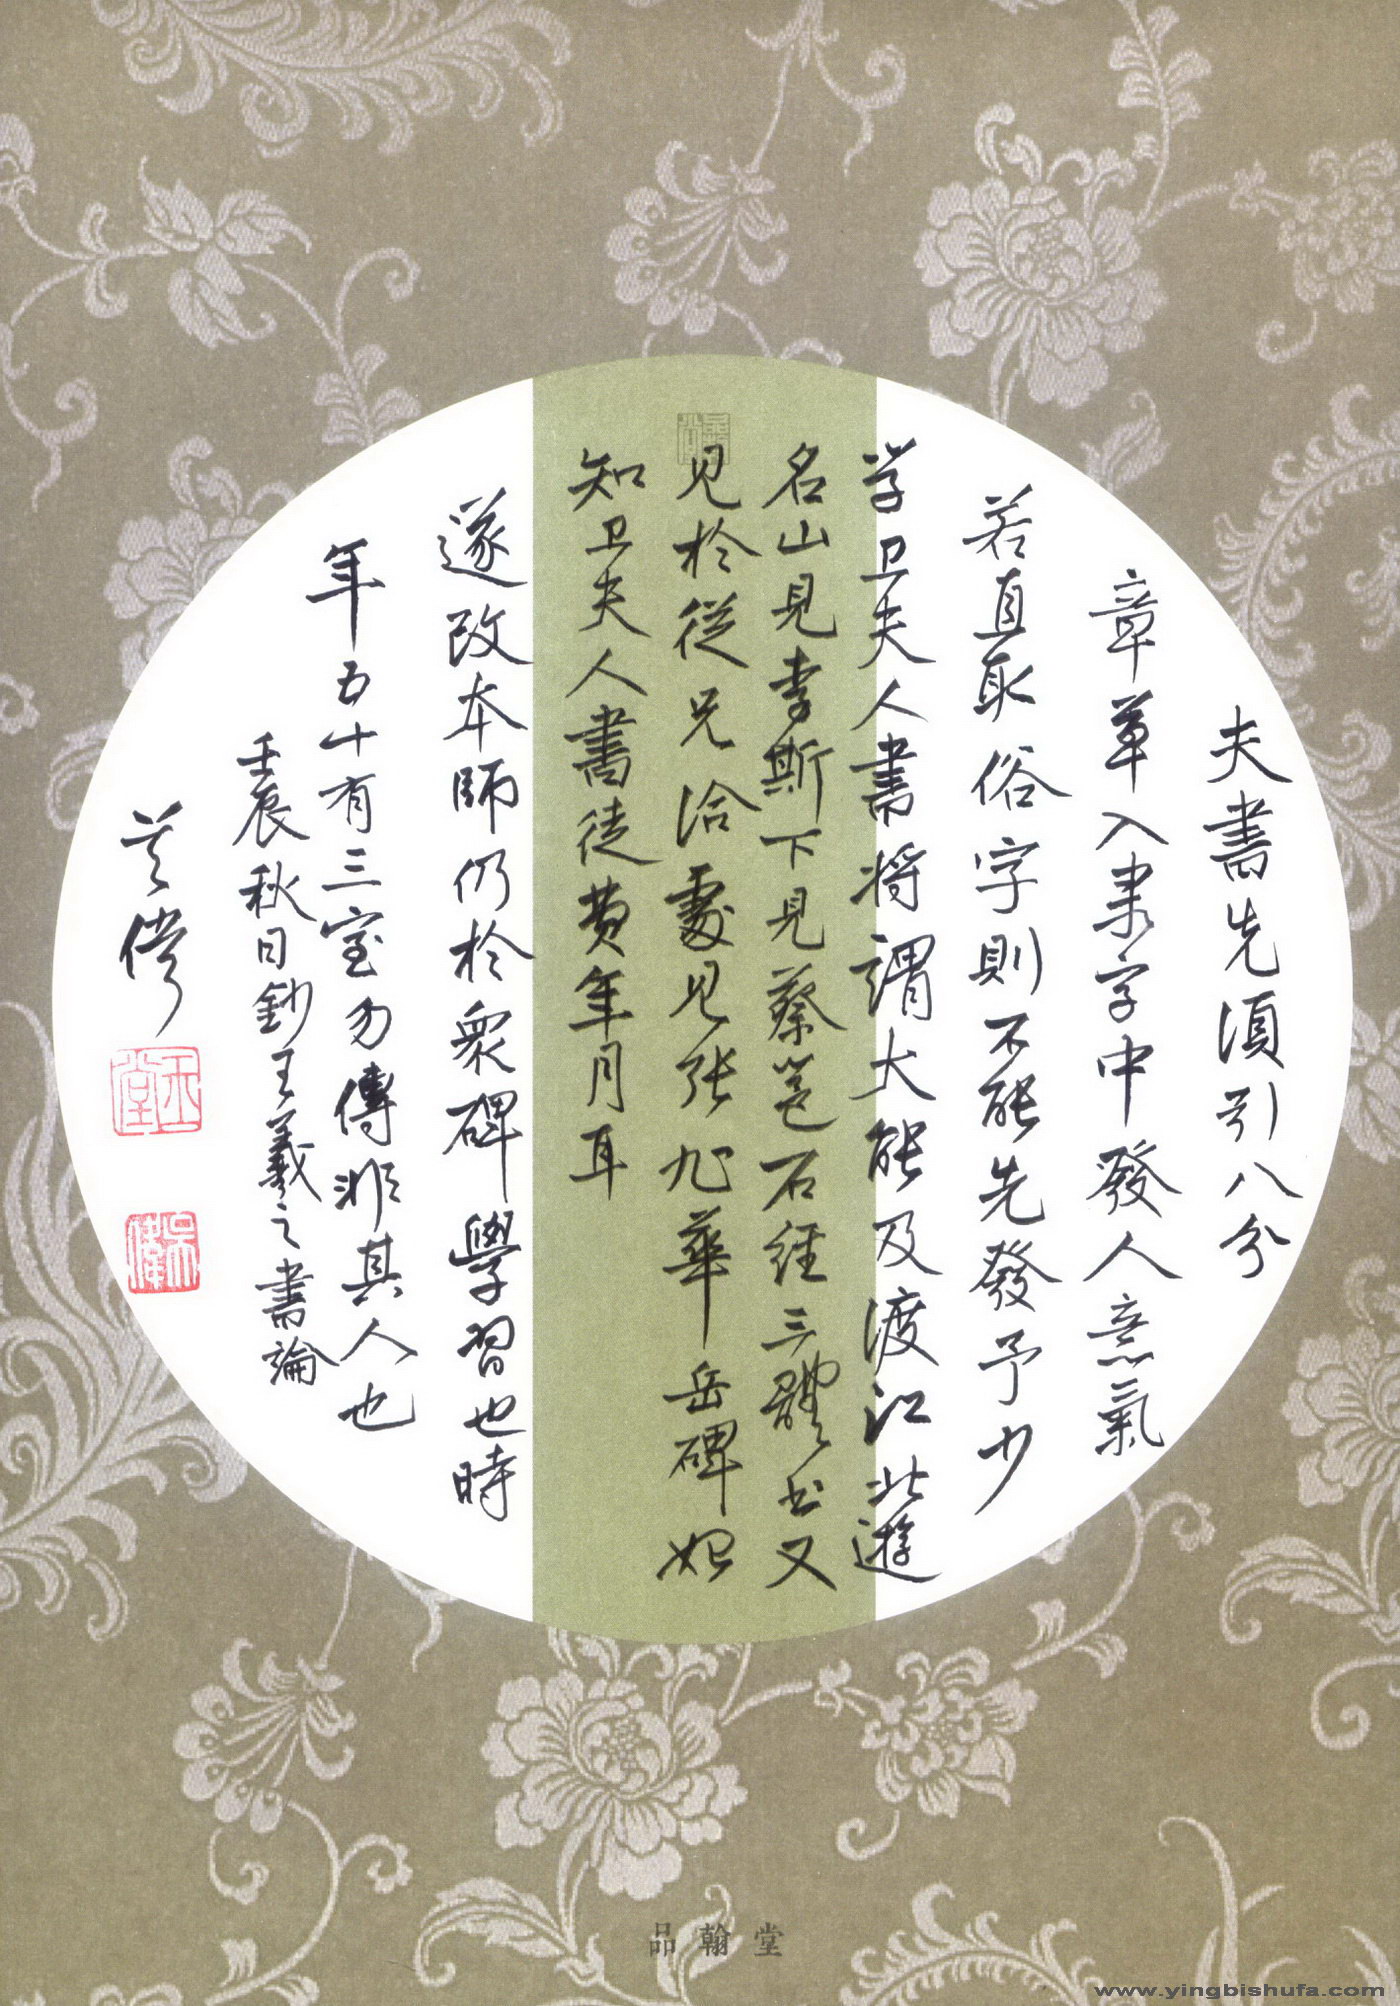 夫書先須引八分
章草入隶字中發人意氣
若直取俗字則不能先發予少
学卫夫人書将謂大能及渡江北遊
名山見李斯下見蔡邕石经三體书又
见於從兄洽處见张旭華岳碑始
知卫夫人書徒费年月耳
遂改本師仍於衆碑學習也時
年五十有三室勿傳非其人也
壬辰秋日鈔王羲之書論
品翰堂
www.yingbishufa.com